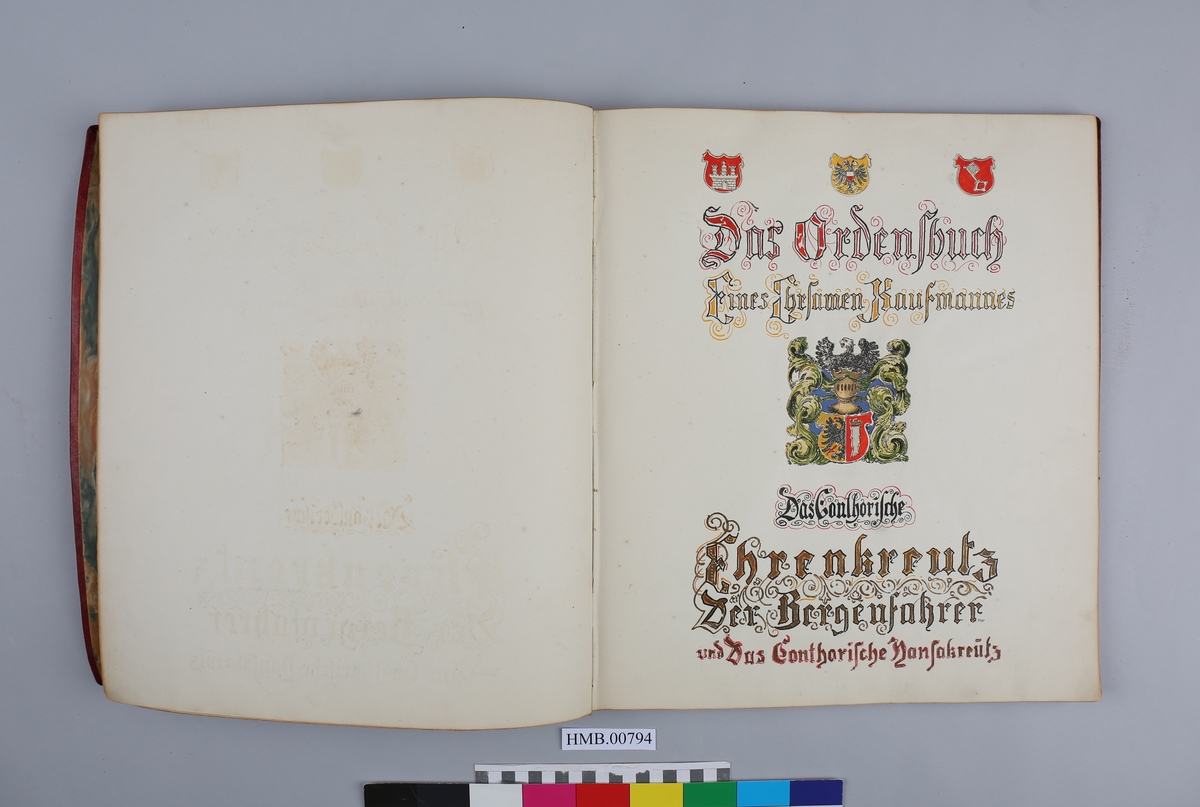 Das Ordensbuch
Eines Ehrsamen Kaufmannes
Das Conthorische
Ehrenkreutz
Der Bergenfahrer
und Das Conthorische Hansakreütz
HMB.00794